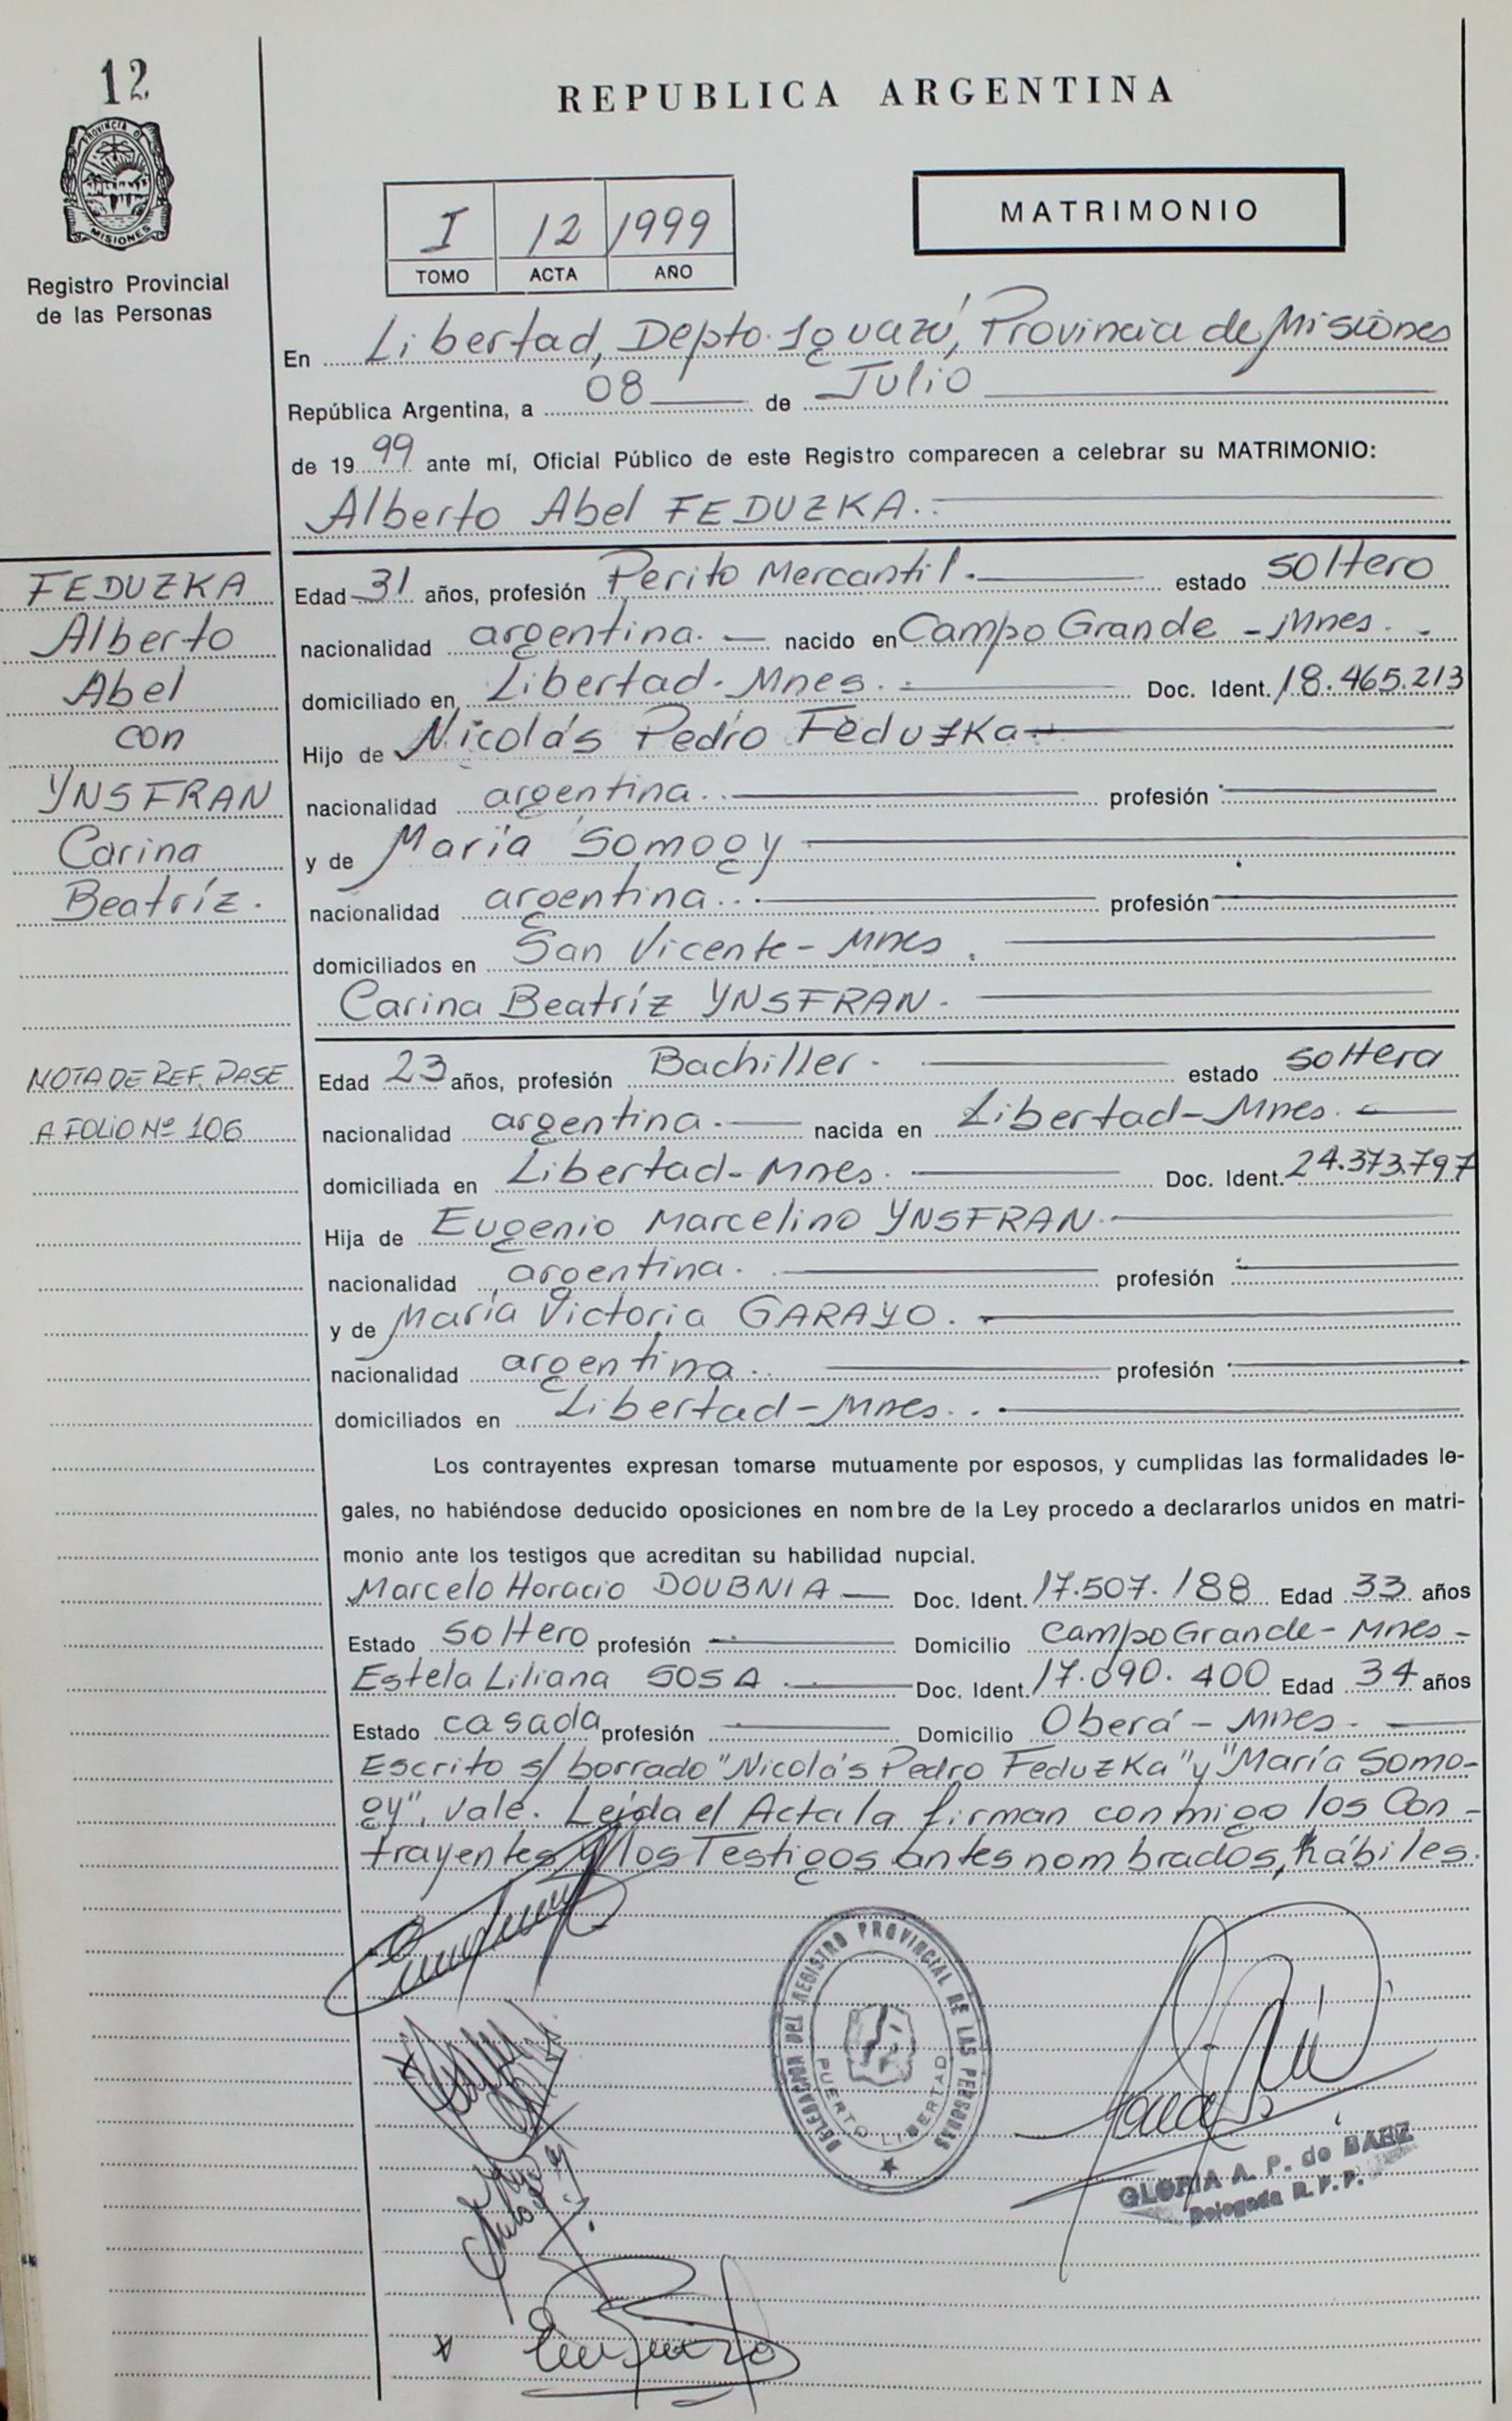 12
PROVINCIA DE
MISIONES
Registro Provincial
de las Personas
REPUBLICA ARGENTINA
I 12 1999
TOMO ACTA AÑO
MATRIMONIO
En Libertad, Depto. Iguazú, Provincia de Misiones
República Argentina, a 08 de Julio
de 1999 ante mí, Oficial Público de este Registro comparecen a celebrar su MATRIMONIO:
Alberto Abel FEDUZKA.
FEDUZKA
Alberto
Abel
con
YNSFRAN
Carina
Beatríz.
NOTA DE REF. PASE
A FOLIO Nº 106
Edad 31 años, profesión Perito Mercantil. estado soltero
nacionalidad argentina. nacido en Campo Grande - Mnes.
domiciliado en Libertad - Mnes. Doc. Ident. 18.465.213
Hijo de Nicolás Pedro Feduzka
nacionalidad argentina. profesión
y de María Somogy
nacionalidad argentina. profesión
domiciliados en San Vicente - Mnes.
Carina Beatríz YNSFRAN.
Edad 23 años, profesión Bachiller. estado soltera
nacionalidad argentina. nacida en Libertad - Mnes.
domiciliada en Libertad - Mnes. Doc. Ident. 24.373.797
Hija de Eugenio Marcelino YNSFRAN.
nacionalidad argentina. profesión
y de María Victoria GARAYO.
nacionalidad argentina. profesión
domiciliados en Libertad - Mnes.
Los contrayentes expresan tomarse mutuamente por esposos, y cumplidas las formalidades le-
gales, no habiéndose deducido oposiciones en nombre de la Ley procedo a declararlos unidos en matri-
monio ante los testigos que acreditan su habilidad nupcial.
Marcelo Horacio DOUBNIA Doc. Ident. 17.507.188 Edad 33 años
Estado soltero profesión Domicilio Campo Grande - Mnes -
Estela Liliana SOSA Doc. Ident. 17.090.400 Edad 34 años
Estado casada profesión Domicilio Oberá - Mnes.
Escrito s/ borrado "Nicolás Pedro Feduzka" y "María Somo-
gy", vale. Leída el Acta la firman conmigo los Con-
trayentes y los Testigos antes nombrados, hábiles.
DELEGACION DEL REGISTRO PROVINCIAL DE LAS PERSONAS
PUERTO LIBERTAD
GLORIA A. P. de BAEZ
Delegada R. P. P.